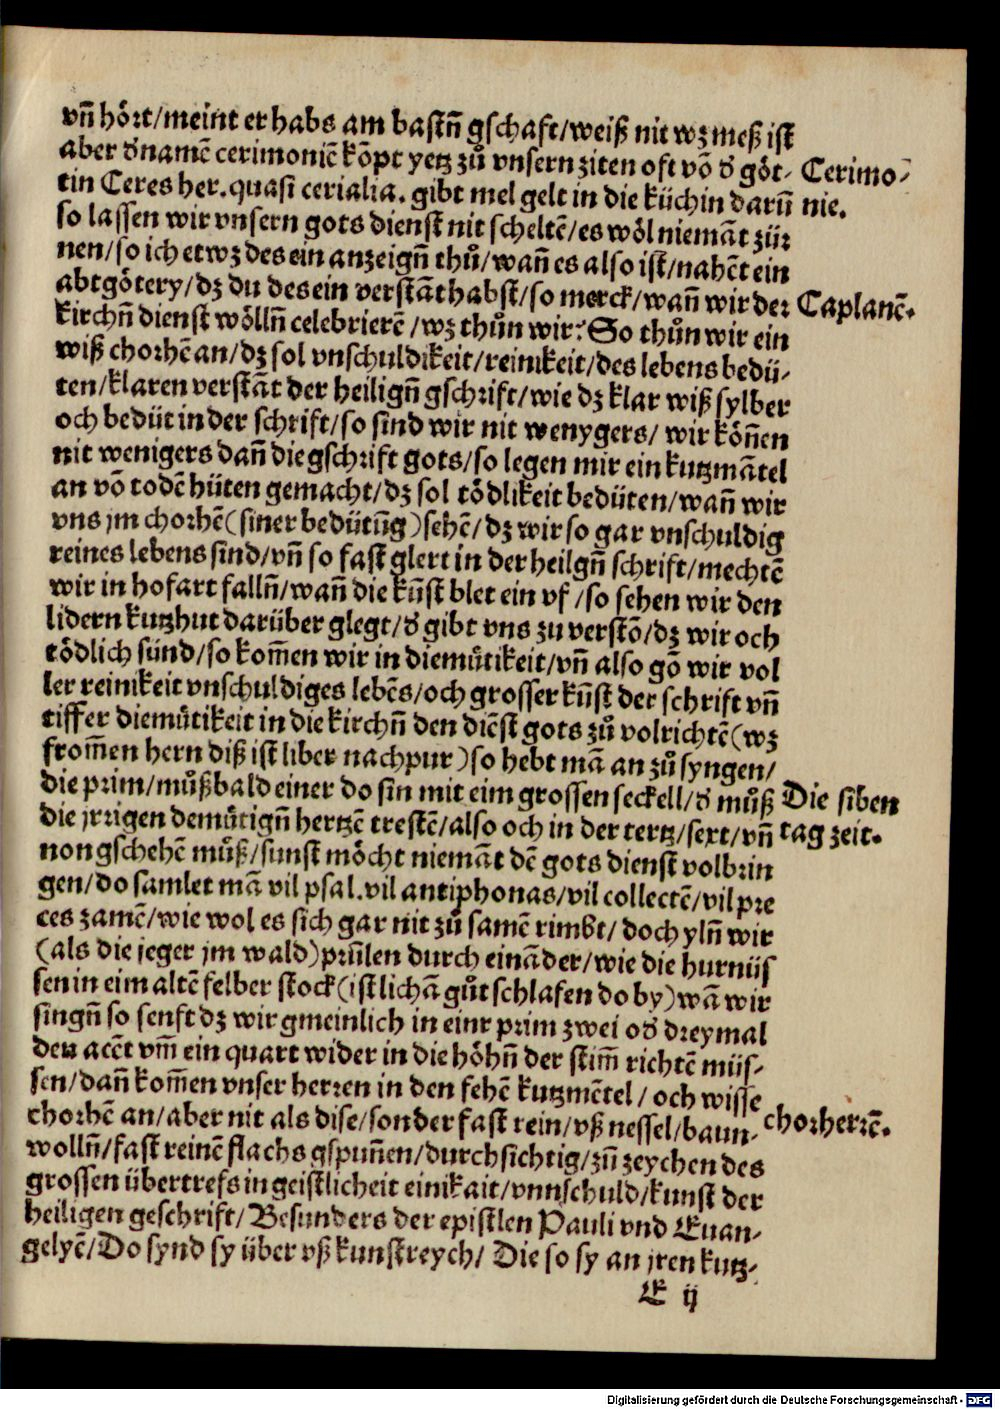 vñ hört/meint er habs am bastñ gschaft/weiß nit wz meß ist
aber d̕ namē cerimoniē kōpt yetz zů vnsern ziten oft vō d̕ göt- Cerimo-
tin Ceres her.quasi cerialia.gibt mel gelt in die küchin darū nie.
so lassen wir vnsern gots dienst nit scheltē/es wöl niemāt zür
nen/so ich etwz des ein anzeigñ thů/wañ es also ist/nahēt ein
abtgötery/dz du des ein verstāt habst/so merck/wañ wir der Caplanē.
kirchñ dienst wöllñ celebrierē/wz thůn wir? So thůn wir ein
wiß chorhē an/dz sol vnschuldikeit/reinikeit/des lebens bedü-
ten/klaren verstāt der heiligñ gschrift/wie dz klar wiß sylber
och bedüt in der schrift/so sind wir nit wenygers/ wir köñen
nit wenigers dañ die gschrift gots/so legen mir ein kutzmātel
an vō todē hüten gemacht/dz sol tödlikeit bedüten/wañ wir
vns jm chorhē(siner bedütūg)sehē/dz wir so gar vnschuldig
reines lebens sind/vñ so fast glert in der heilgñ schrift/mechtē
wir in hofart fallñ/wañ die kūst blet ein vf/so sehen wir den
lidern kutzhut darüber glegt/d̕ gibt vns zu verstō/dz wir och
tödlich sünd/so kom̄en wir in diemůtikeit/vñ also gō wir vol
ler reinikeit vnschuldiges lebēs/och grosser kūst der schrift vñ
tiffer diemůtikeit in die kirchñ den diēst gots zů volrichtē(wz
from̄en hern diß ist liber nachpur)so hebt mā an zů syngen/
die prim/můß bald einer do sin mit eim grossen seckell/d̕ můß Die siben
die jrrigen demůtigñ hertzē trestē/also och in der tertz/sext/vñ tag zeit.
non gschehē můß/sunst möcht niemāt dē gots dienst volbrin
gen/do samlet mā vil psal.vil antiphonas/vil collectē/vil pre
ces zamē/wie wol es sich gar nit zů samē rimbt/doch ylñ wir
(als die jeger jm wald)prūlen durch eināder/wie die hurnüs
sen in eim altē felber stock(ist lichā gůt schlafen do by)wā wir
singñ so senft dz wir gmeinlich in einr prim zwei od̕ dreymal
den acēt vm̄ ein quart wider in die höhñ der stim̄ richtē müs-
sen/dañ kom̄en vnser herren in den fehē kutzmētel/och wisse
chorhē an/aber nit als dise/sonder fast rein/vß nessel/baun- chorherrē.
wollñ/fast reinē flachs gspuñen/durchsichtig/zū zeychen des
grossen übertrefs in geistlicheit einikait/vnnschuld/kunst der
heiligen geschrift/ Besunders der epistlen Pauli vnd Euan-
gelyē/Do synd sy über vß kunstreych/ Die so sy an jren kutz-
E ij
Digitalisierung gefördert durch die Deutsche Forschungsgemeinschaft - DFG